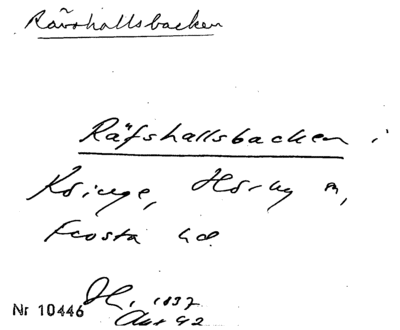 Rävshallsbacken
Räfshallsbacken i
Kringe, Hörby sn,
Frosta hd.
Nr 10446 1937
Akt 42